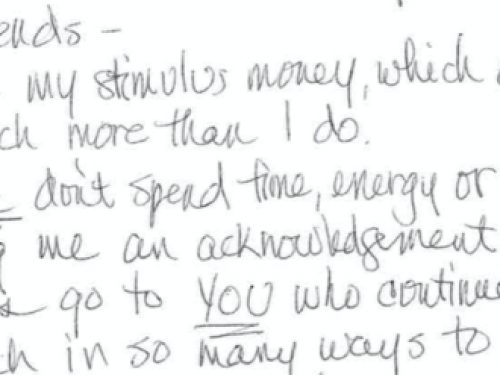 ends –
my stimulus money, which
ch more than I do.
don't spend time, energy or
me an acknowledgement
go to YOU who continue
h in so many ways to